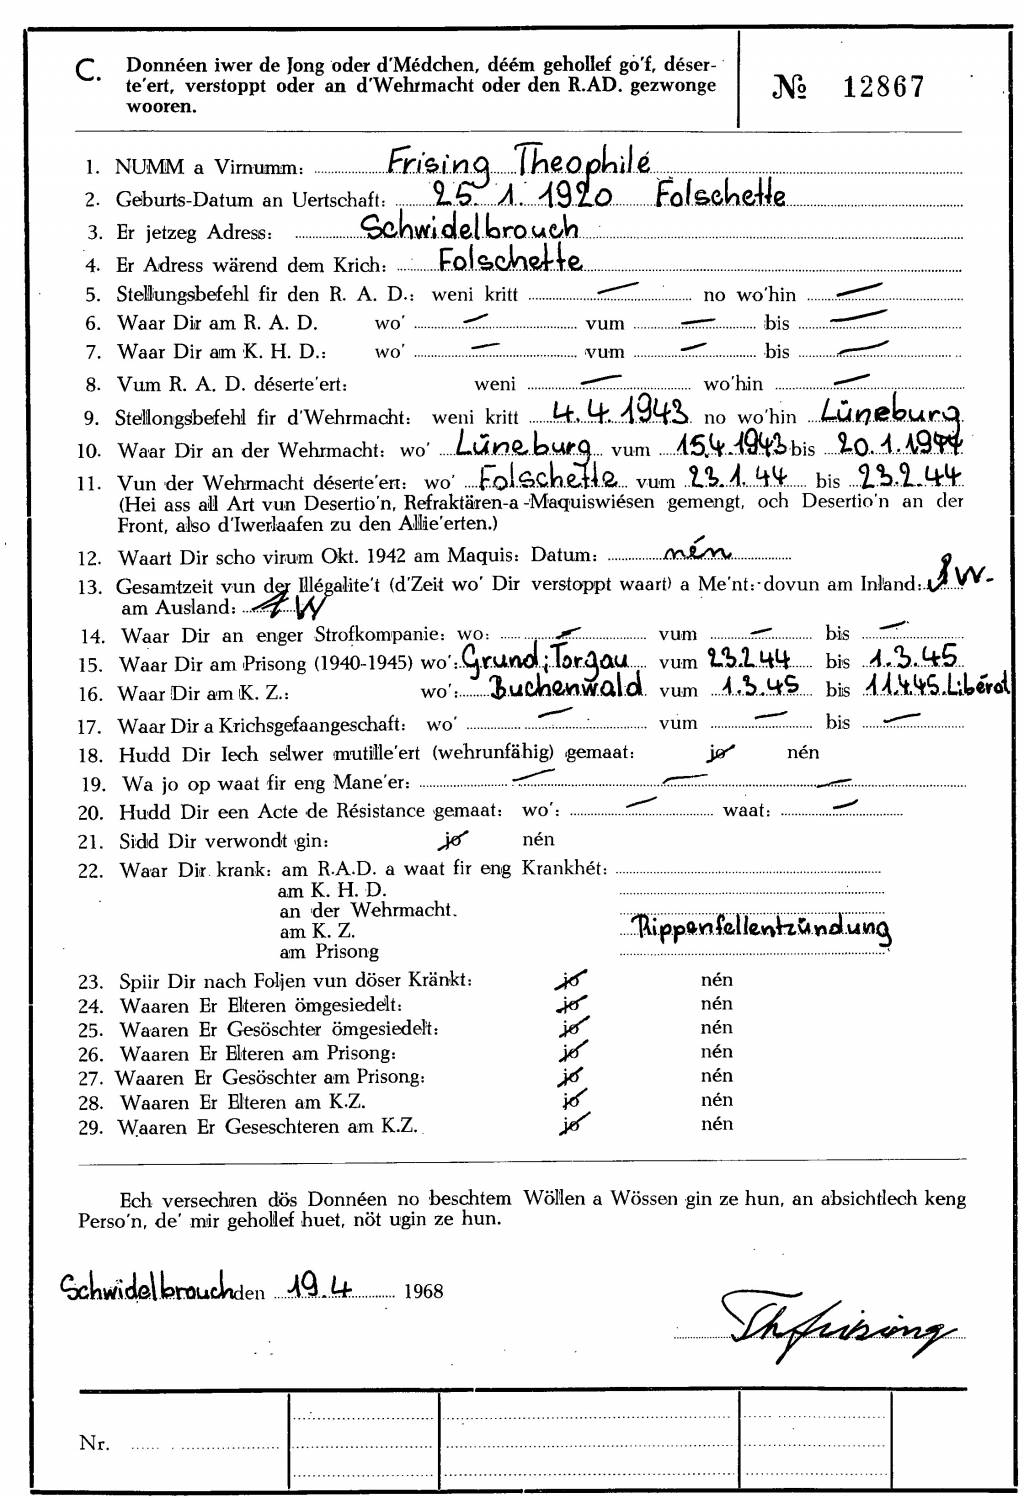 C. Donnéen iwer de Jong oder d'Médchen, déém gehollef go'f, déser-
te'ert, verstoppt oder an d'Wehrmacht oder den R.AD. gezwonge
wooren.
№ 12867
1. NUMM a Virnumm: Frising Theophile
2. Geburts-Datum an Uertschaft: 25. 1. 1920 Folschette
3. Er jetzeg Adress: Schwidelbrouch
4. Er Adress wärend dem Krich: Folschette
5. Stellungsbefehl fir den R. A. D.: weni kritt — no wo'hin —
6. Waar Dir am R. A. D. wo' — vum — bis —
7. Waar Dir am K. H. D.: wo' — vum — bis —
8. Vum R. A. D. déserte'ert: weni — wo'hin —
9. Stellongsbefehl fir d'Wehrmacht: weni kritt 4.4.1943 no wo'hin Lüneburg
10. Waar Dir an der Wehrmacht: wo' Lüneburg vum 15.4.1943 bis 20.1.1944
11. Vun der Wehrmacht déserte'ert: wo' Folschette vum 23.1.44 bis 23.2.44
(Hei ass all Art vun Desertio'n, Refraktären-a-Maquiswiésen gemengt, och Desertio'n an der
Front, also d'Iwerlaafen zu den Allie'erten.)
12. Waart Dir scho virum Okt. 1942 am Maquis: Datum: nén
13. Gesamtzeit vun der Illégalite't (d'Zeit wo' Dir verstoppt waart) a Me'nt: dovun am Inland: W.
am Ausland: W
14. Waar Dir an enger Strofkompanie: wo: — vum — bis —
15. Waar Dir am Prisong (1940-1945) wo': Grund; Torgau vum 23.2.44 bis 1.3.45
16. Waar Dir am K. Z.: wo': Buchenwald vum 1.3.45 bis 11.4.45. Libérat
17. Waar Dir a Krichsgefaangeschaft: wo' — vum — bis —
18. Hudd Dir Iech selwer mutille'ert (wehrunfähig) gemaat: jo nén
19. Wa jo op waat fir eng Mane'er: — — —
20. Hudd Dir een Acte de Résistance gemaat: wo': — waat: —
21. Sidd Dir verwondt gin: jo nén
22. Waar Dir krank: am R.A.D. a waat fir eng Krankhét:
am K. H. D.
an der Wehrmacht.
am K. Z. Rippenfellentzündung
am Prisong
23. Spiir Dir nach Foljen vun döser Kränkt: jo nén
24. Waaren Er Elteren ömgesiedelt: jo nén
25. Waaren Er Gesöschter ömgesiedelt: jo nén
26. Waaren Er Elteren am Prisong: jo nén
27. Waaren Er Gesöschter am Prisong: jo nén
28. Waaren Er Elteren am K.Z. jo nén
29. Waaren Er Geseschteren am K.Z. jo nén
Ech versechren dös Donnéen no beschtem Wöllen a Wössen gin ze hun, an absichtlech keng
Perso'n, de' mir gehollef huet, nöt ugin ze hun.
Schwidelbrouch den 19.4 1968
Th frising
Nr.